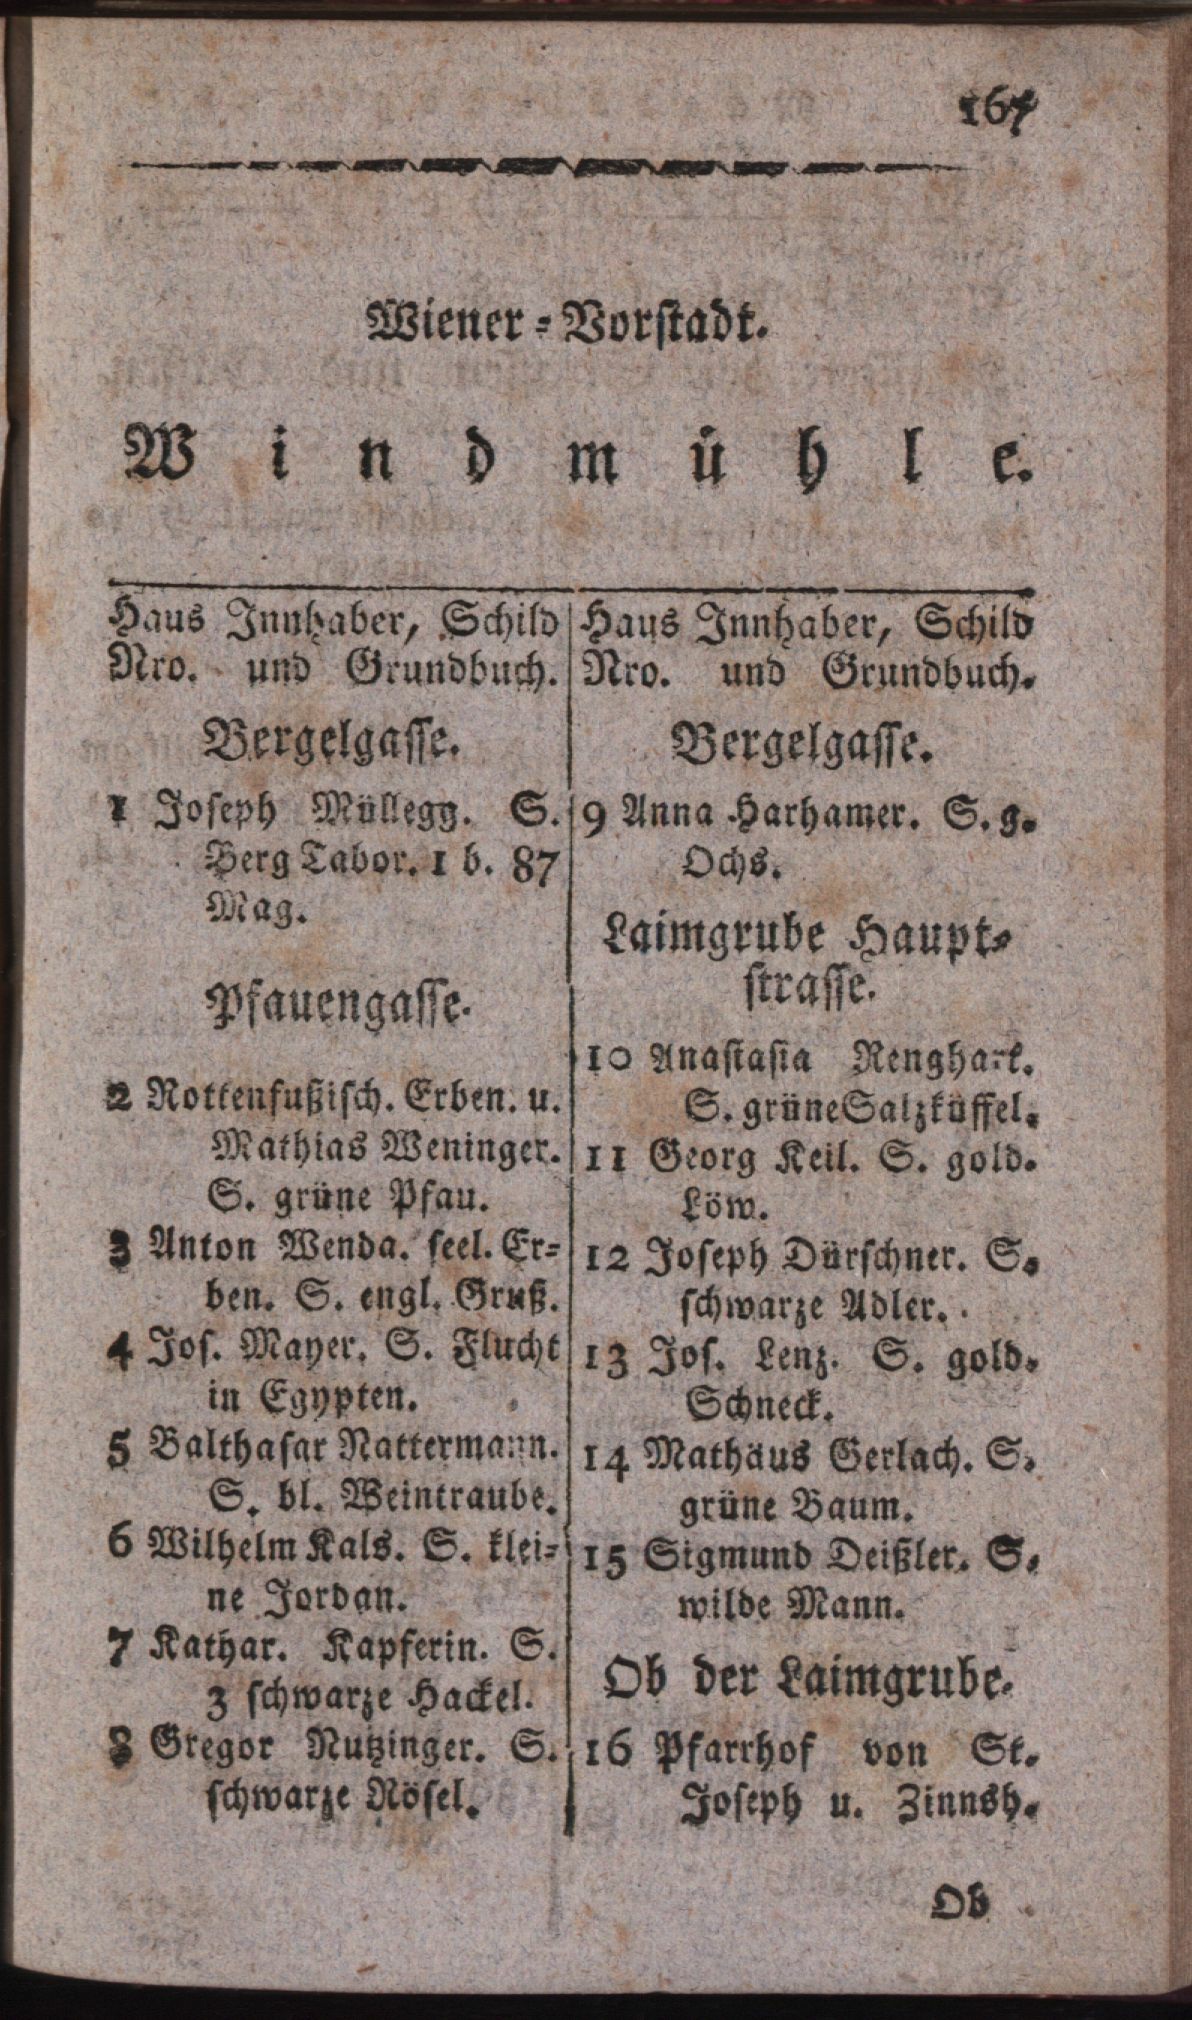 167
Wiener-Vorstadt.
Windmühle.
Haus Innhaber, Schild
Nro. und Grundbuch.
Bergelgasse.
1 Joseph Müllegg. S.
Berg Tabor. 1 b. 87
Mag.
Pfauengasse.
2 Rottenfußisch. Erben. u.
Mathias Weninger.
S. grüne Pfau.
3 Anton Wenda. seel. Er-
ben. S. engl. Gruß.
4 Jos. Mayer. S. Flucht
in Egypten.
5 Balthasar Nattermann.
S. bl. Weintraube.
6 Wilhelm Kals. S. klei-
ne Jordan.
7 Kathar. Kapferin. S.
3 schwarze Hackel.
8 Gregor Nutzinger. S.
schwarze Rösel.
Haus Innhaber, Schild
Nro. und Grundbuch.
Bergelgasse.
9 Anna Harhamer. S. g.
Ochs.
Laimgrube Haupt-
strasse.
10 Anastasia Renghart.
S. grüne Salzküffel.
11 Georg Keil. S. gold.
Löw.
12 Joseph Dürschner. S.
schwarze Adler.
13 Jos. Lenz. S. gold.
Schneck.
14 Mathäus Gerlach. S.
grüne Baum.
15 Sigmund Deißler. S.
wilde Mann.
Ob der Laimgrube.
16 Pfarrhof von St.
Joseph u. Zinnsh.
Ob